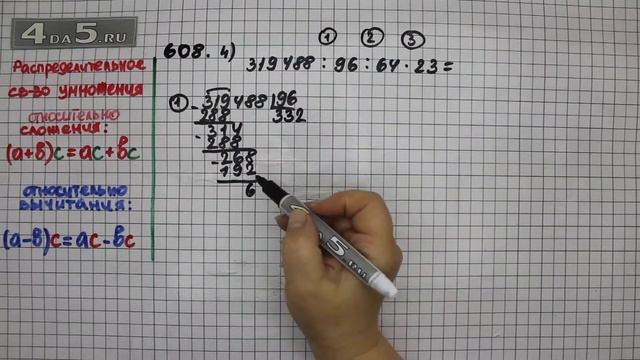 4DA5.RU
Распределительное
св-во умножения
относительно
сложения:
(а+в)с=ас+вс
относительно
вычитания:
(а-в)с=ас-вс
608. 4)
① ② ③
319488 : 96 : 64 · 23 =
① - 319488 | 96
288 332
- 314
288
- 268
192
6
4DA5.RU